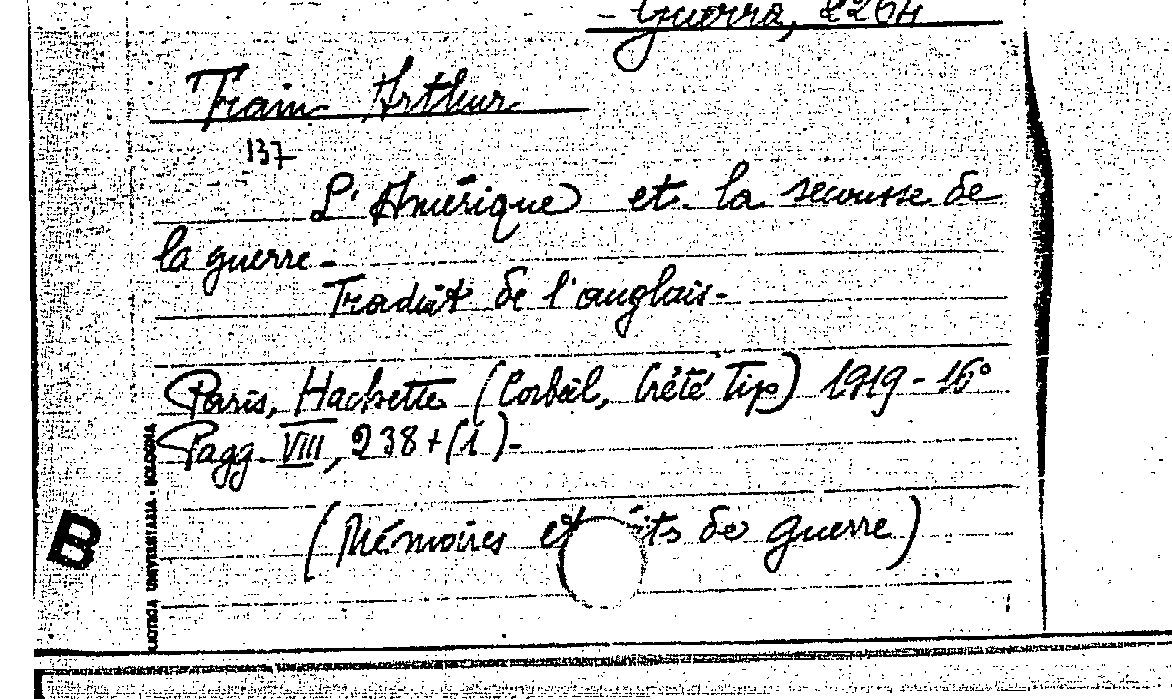 - Guerra, 2264
Train Arthur
137
L'Amérique et la secousse de
la guerre -
Traduit de l'anglais -
Paris, Hachette (Corbeil, Crété Tip) 1919 - 16°
Pagg. VIII, 238 + (1) -
(Mémoires et de guerre)
B
UNIVERSITARIA - BOLOGNA